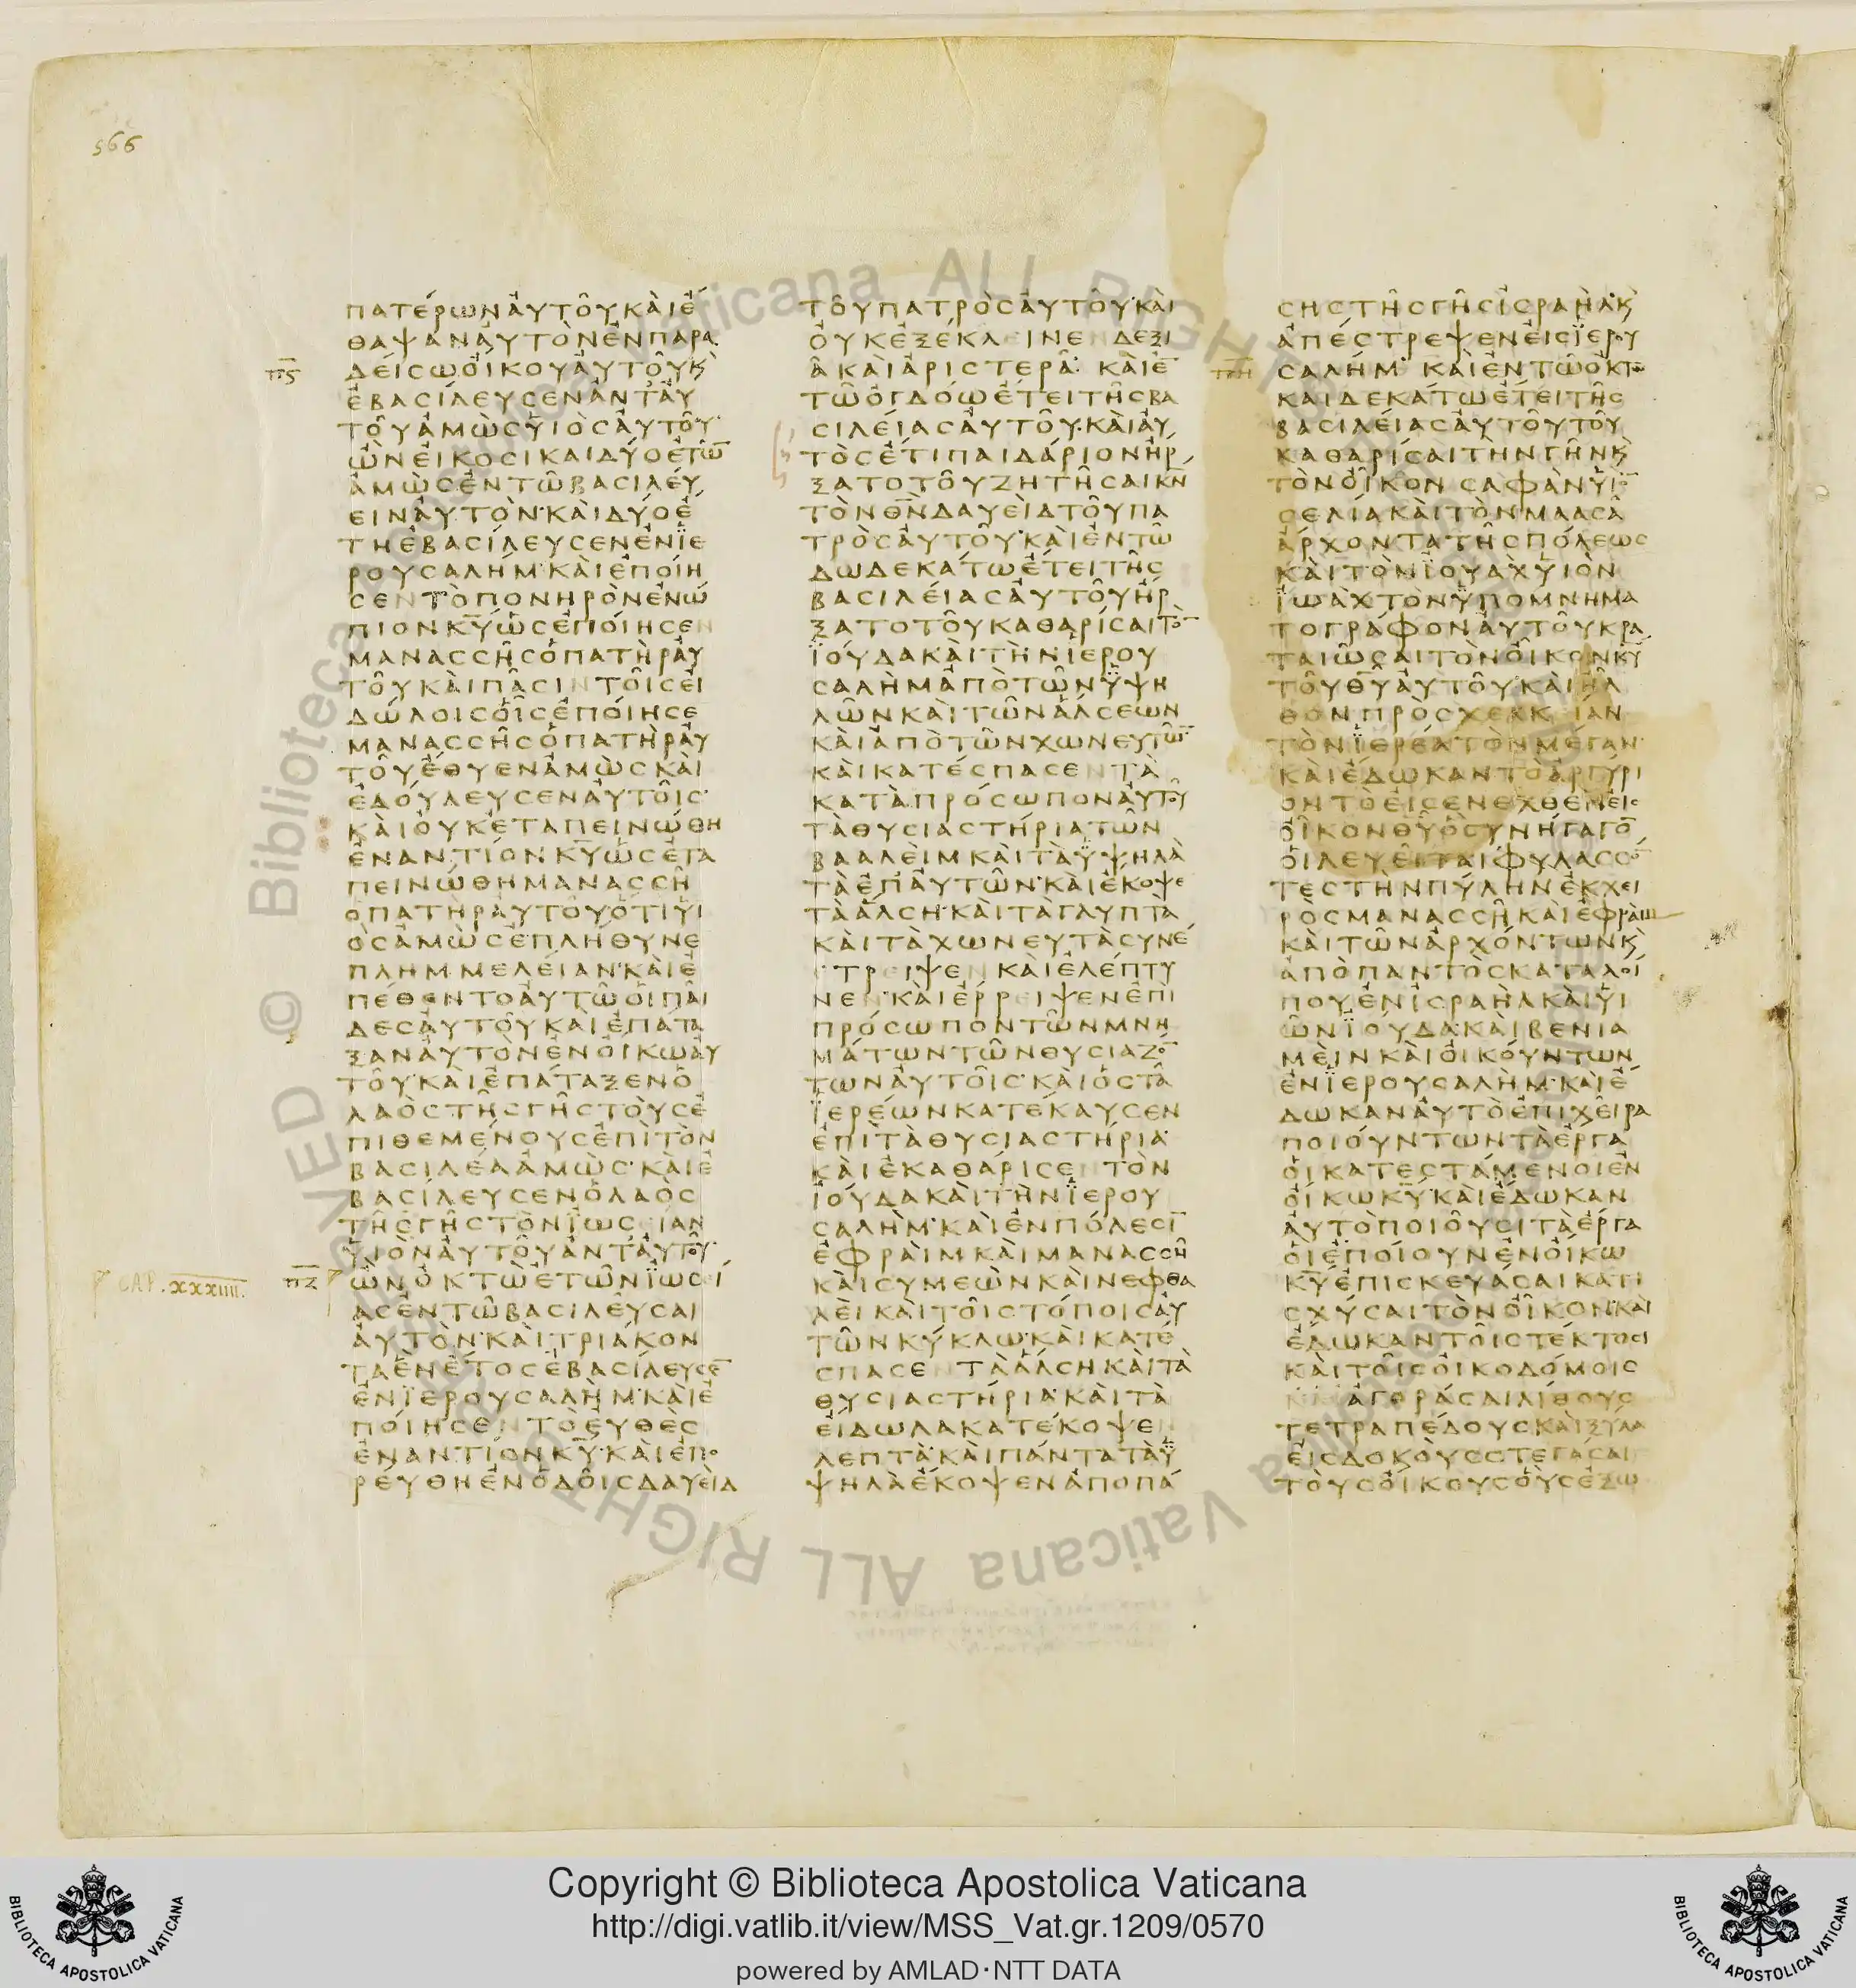 566
ΠΑΤΕΡΩΝΑΥΤΟΥΚΑΙΕ
ΘΑΨΑΝΑΥΤΟΝΕΝΠΑΡΑ
ΔΕΙΣΩΟΙΚΟΥΑΥΤΟΥΚ
ΕΒΑΣΙΛΕΥΣΕΝΑΝΤΑΥ
ΤΟΥΑΜΩΣΥΙΟΣΑΥΤΟΥ
ΩΝΕΙΚΟΣΙΚΑΙΔΥΟΕΤΩ̅
ΑΜΩΣΕΝΤΩΒΑΣΙΛΕΥ
ΕΙΝΑΥΤΟΝ·ΚΑΙΔΥΟΕ
ΤΗΕΒΑΣΙΛΕΥΣΕΝΕΝΪΕ
ΡΟΥΣΑΛΗΜ·ΚΑΙΕΠΟΙΗ
ΣΕΝΤΟΠΟΝΗΡΟΝΕΝΩ
ΠΙΟΝΚ̅Υ̅ΩΣΕΠΟΙΗΣΕΝ
ΜΑΝΑΣΣΗΣΟΠΑΤΗΡΑΥ
ΤΟΥΚΑΙΠΑΣΙΝΤΟΙΣΕΙ
ΔΩΛΟΙΣΟΙΣΕΠΟΙΗΣΕ
ΜΑΝΑΣΣΗΣΟΠΑΤΗΡΑΥ
ΤΟΥΕΘΥΕΝΑΜΩΣΚΑΙ
ΕΔΟΥΛΕΥΣΕΝΑΥΤΟΙΣ·
ΚΑΙΟΥΚΕΤΑΠΕΙΝΩΘΗ
ΕΝΑΝΤΙΟΝΚ̅Υ̅ΩΣΕΤΑ
ΠΕΙΝΩΘΗΜΑΝΑΣΣΗ
ΟΠΑΤΗΡΑΥΤΟΥΟΤΙΥΙ
ΟΣΑΜΩΣΕΠΛΗΘΥΝΕ
ΠΛΗΜΜΕΛΕΙΑΝ·ΚΑΙΕ
ΠΕΘΕΝΤΟΑΥΤΩΟΙΠΑΙ
ΔΕΣΑΥΤΟΥΚΑΙΕΠΑΤΑ
ΞΑΝΑΥΤΟΝΕΝΟΙΚΩΑΥ
ΤΟΥ·ΚΑΙΕΠΑΤΑΞΕΝΟ
ΛΑΟΣΤΗΣΓΗΣΤΟΥΣΕ
ΠΙΘΕΜΕΝΟΥΣΕΠΙΤΟΝ
ΒΑΣΙΛΕΑΑΜΩΣ·ΚΑΙΕ
ΒΑΣΙΛΕΥΣΕΝΟΛΑΟΣ
ΤΗΣΓΗΣΤΟΝΪΩΣΕΙΑΝ
ΥΙΟΝΑΥΤΟΥΑΝΤΑΥΤΟΥ·
CAP. XXXIIII. Π̅Ζ̅ ΩΝΟΚΤΩΕΤΩΝΪΩΣΕΙ
ΑΣΕΝΤΩΒΑΣΙΛΕΥΣΑΙ
ΑΥΤΟΝ·ΚΑΙΤΡΙΑΚΟΝ
ΤΑΕΝΕΤΟΣΕΒΑΣΙΛΕΥΣΕ̅
ΕΝΪΕΡΟΥΣΑΛΗΜ·ΚΑΙΕ
ΠΟΙΗΣΕΝΤΟΕΥΘΕΣ
ΕΝΑΝΤΙΟΝΚ̅Υ̅·ΚΑΙΕΠΟ
ΡΕΥΘΗΕΝΟΔΟΙΣΔΑΥΕΙΔ
ΤΟΥΠΑΤΡΟΣΑΥΤΟΥ·ΚΑΙ
ΟΥΚΕΞΕΚΛΕΙΝΕΝΔΕΞΙ
ΑΚΑΙΑΡΙΣΤΕΡΑ· ΚΑΙΕ̅
ΤΩΟΓΔΟΩΕΤΕΙΤΗΣΒΑ
ΣΙΛΕΙΑΣΑΥΤΟΥ·ΚΑΙΑΥ
ΤΟΣΕΤΙΠΑΙΔΑΡΙΟΝΗΡ
ΞΑΤΟΤΟΥΖΗΤΗΣΑΙΚ̅Ν̅
ΤΟΝΘ̅Ν̅ΔΑΥΕΙΔΤΟΥΠΑ
ΤΡΟΣΑΥΤΟΥ·ΚΑΙΕΝΤΩ
ΔΩΔΕΚΑΤΩΕΤΕΙΤΗΣ
ΒΑΣΙΛΕΙΑΣΑΥΤΟΥΗΡ
ΞΑΤΟΤΟΥΚΑΘΑΡΙΣΑΙΤΟ̅
ΪΟΥΔΑΚΑΙΤΗΝΪΕΡΟΥ
ΣΑΛΗΜΑΠΟΤΩΝΫΨΗ
ΛΩΝΚΑΙΤΩΝΑΛΣΕΩΝ
ΚΑΙΑΠΟΤΩΝΧΩΝΕΥΤΩ̅
ΚΑΙΚΑΤΕΣΠΑΣΕΝΤΑ
ΚΑΤΑΠΡΟΣΩΠΟΝΑΥΤΟΥ
ΤΑΘΥΣΙΑΣΤΗΡΙΑΤΩΝ
ΒΑΑΛΕΙΜΚΑΙΤΑΫΨΗΛΑ
ΤΑΕΠΑΥΤΩΝ·ΚΑΙΕΚΟΨΕ
ΤΑΑΛΣΗ·ΚΑΙΤΑΓΛΥΠΤΑ
ΚΑΙΤΑΧΩΝΕΥΤΑΣΥΝΕ
ΤΡΕΙΨΕΝ ΚΑΙΕΛΕΠΤΥ
ΝΕΝ·ΚΑΙΕΡΡΕΙΨΕΝΕΠΙ
ΠΡΟΣΩΠΟΝΤΩΝΜΝΗ
ΜΑΤΩΝΤΩΝΘΥΣΙΑΖΟ̅
ΤΩΝΑΥΤΟΙΣ·ΚΑΙΟΣΤΑ
ΪΕΡΕΩΝΚΑΤΕΚΑΥΣΕΝ
ΕΠΙΤΑΘΥΣΙΑΣΤΗΡΙΑ·
ΚΑΙΕΚΑΘΑΡΙΣΕΝΤΟΝ
ΪΟΥΔΑΚΑΙΤΗΝΪΕΡΟΥ
ΣΑΛΗΜ·ΚΑΙΕΝΠΟΛΕΣΙ̅
ΕΦΡΑΙΜΚΑΙΜΑΝΑΣΣΗ
ΚΑΙΣΥΜΕΩΝΚΑΙΝΕΦΘΑ
ΛΕΙΚΑΙΤΟΙΣΤΟΠΟΙΣΑΥ
ΤΩΝΚΥΚΛΩ·ΚΑΙΚΑΤΕ
ΣΠΑΣΕΝΤΑΑΛΣΗΚΑΙΤΑ
ΘΥΣΙΑΣΤΗΡΙΑ·ΚΑΙΤΑ
ΕΙΔΩΛΑΚΑΤΕΚΟΨΕΝ
ΛΕΠΤΑ·ΚΑΙΠΑΝΤΑΤΑΫ
ΨΗΛΑΕΚΟΨΕΝΑΠΟΠΑ
ΣΗΣΤΗΣΓΗΣΙΣΡΑΗΛ·Κ
ΑΠΕΣΤΡΕΨΕΝΕΙΣΪΕΡΟΥ
ΣΑΛΗΜ· ΚΑΙΕΝΤΩΟΚΤΩ
ΚΑΙΔΕΚΑΤΩΕΤΕΙΤΗΣ
ΒΑΣΙΛΕΙΑΣΑΥΤΟΥΤΟΥ
ΚΑΘΑΡΙΣΑΙΤΗΝΓΗΝΚ
ΤΟΝΟΙΚΟΝ ΣΑΦΑΝΥΙΟ̅
ΣΕΛΙΑΚΑΙΤΟΝΜΑΑΣΑ
ΑΡΧΟΝΤΑΤΗΣΠΟΛΕΩΣ
ΚΑΙΤΟΝΪΟΥΑΧΥΙΟΝ
ΪΩΑΧΤΟΝΫΠΟΜΝΗΜΑ
ΤΟΓΡΑΦΟΝΑΥΤΟΥΚΡΑ
ΤΑΙΩΣΑΙΤΟΝΟΙΚΟΝΚ̅Υ̅
ΤΟΥΘ̅Υ̅ΑΥΤΟΥ·ΚΑΙΗΛ
ΘΟΝΠΡΟΣΧΕΛΚΕΙΑΝ
ΤΟΝΪΕΡΕΑΤΟΝΜΕΓΑΝ·
ΚΑΙΕΔΩΚΑΝΤΟΑΡΓΥΡΙ
ΟΝΤΟΕΙΣΕΝΕΧΘΕΝΕΙΣ
ΟΙΚΟΝΘ̅Υ̅ΟΣΥΝΗΓΑΓΟ̅
ΟΙΛΕΥΕΙΤΑΙΦΥΛΑΣΣΟ̅
ΤΕΣΤΗΝΠΥΛΗΝΕΚΧΕΙ
ΡΟΣΜΑΝΑΣΣΗΚΑΙΕΦΡΑΙΜ
ΚΑΙΤΩΝΑΡΧΟΝΤΩΝΚ
ΑΠΟΠΑΝΤΟΣΚΑΤΑΛΟΙ
ΠΟΥΕΝΙΣΡΑΗΛΚΑΙΥΙ
ΩΝΪΟΥΔΑ·ΚΑΙΒΕΝΙΑ
ΜΕΙΝΚΑΙΟΙΚΟΥΝΤΩΝ
ΕΝΪΕΡΟΥΣΑΛΗΜ·ΚΑΙΕ
ΔΩΚΑΝΑΥΤΟΕΠΙΧΕΙΡΑ
ΠΟΙΟΥΝΤΩΝΤΑΕΡΓΑ
ΟΙΚΑΤΕΣΤΑΜΕΝΟΙΕΝ
ΟΙΚΩΚ̅Υ̅·ΚΑΙΕΔΩΚΑΝ
ΑΥΤΟΠΟΙΟΥΣΙΤΑΕΡΓΑ
ΟΙΕΠΟΙΟΥΝΕΝΟΙΚΩ
Κ̅Υ̅ΕΠΙΣΚΕΥΑΣΑΙΚΑΤΙ
ΣΧΥΣΑΙΤΟΝΟΙΚΟΝ·ΚΑΙ
ΕΔΩΚΑΝΤΟΙΣΤΕΚΤΟΣΙ
ΚΑΙΤΟΙΣΟΙΚΟΔΟΜΟΙΣ
ΑΓΟΡΑΣΑΙΛΙΘΟΥΣ
ΤΕΤΡΑΠΕΔΟΥΣΚΑΙΞΥΛΑ
ΕΙΣΔΟΚΟΥΣΣΤΕΓΑΣΑΙ
ΤΟΥΣΟΙΚΟΥΣΟΥΣΕΞΩ
Copyright © Biblioteca Apostolica Vaticana
http://digi.vatlib.it/view/MSS_Vat.gr.1209/0570
powered by AMLAD·NTT DATA
BIBLIOTECA APOSTOLICA VATICANA
BIBLIOTECA APOSTOLICA VATICANA